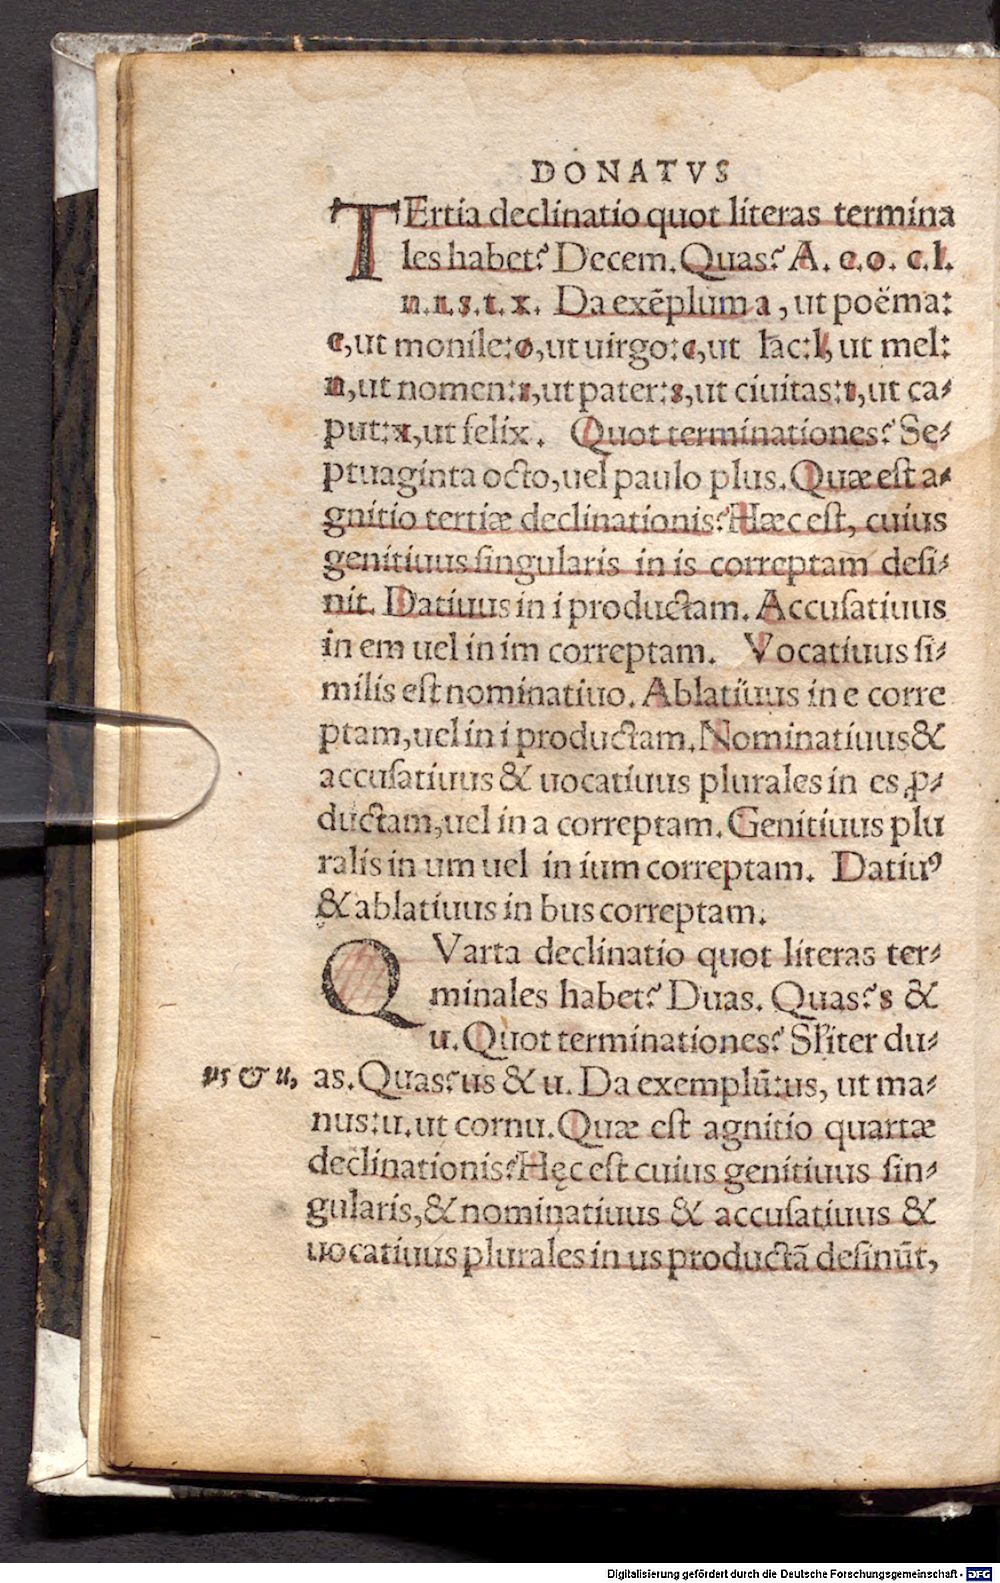 DONATVS
TErtia declinatio quot literas termina
les habet? Decem. Quas? A. e. o. c. l.
n. r. s. t. x. Da exẽplum a, ut poëma:
e, ut monile: o, ut uirgo: c, ut lac: l, ut mel:
n, ut nomen: r, ut pater: s, ut ciuitas: t, ut ca-
put: x, ut felix. Quot terminationes? Se-
ptuaginta octo, uel paulo plus. Quæ est a-
gnitio tertiæ declinationis? Hæc est, cuius
genitiuus singularis in is correptam desi-
nit. Datiuus in i productam. Accusatiuus
in em uel in im correptam. Vocatiuus si-
milis est nominatiuo. Ablatiuus in e corre
ptam, uel in i productam. Nominatiuus &
accusatiuus & uocatiuus plurales in es ꝓ-
ductam, uel in a correptam. Genitiuus plu
ralis in um uel in ium correptam. Datiuꝰ
& ablatiuus in bus correptam.
QVarta declinatio quot literas ter-
minales habet? Duas. Quas? s &
u. Quot terminationes? Sr̃iter du-
us & u, as. Quas? us & u. Da exemplũ: us, ut ma-
nus: u. ut cornu. Quæ est agnitio quartæ
declinationis? Hęc est cuius genitiuus sin-
gularis, & nominatiuus & accusatiuus &
uocatiuus plurales in us productã desinũt,
Digitalisierung gefördert durch die Deutsche Forschungsgemeinschaft - DFG